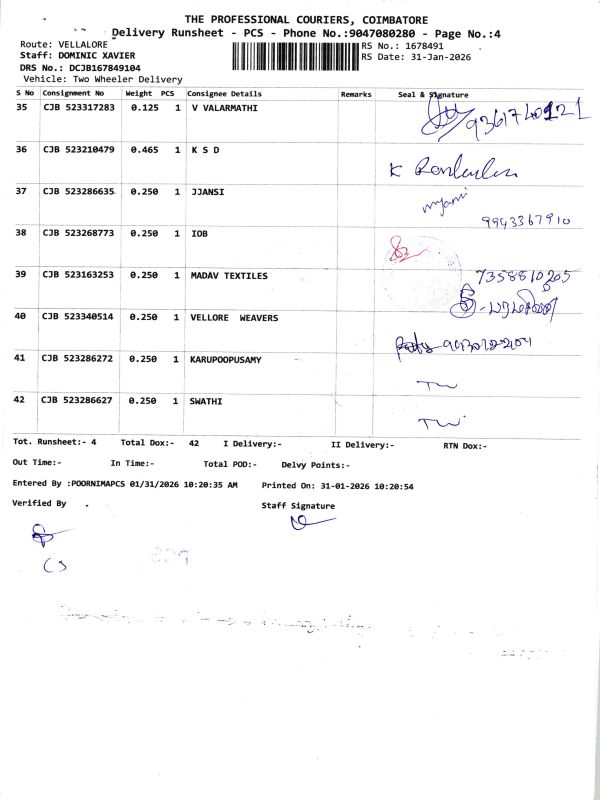 THE PROFESSIONAL COURIERS, COIMBATORE
Delivery Runsheet - PCS - Phone No.:9047080280 - Page No.:4
Route: VELLALORE
RS No.: 1678491
Staff: DOMINIC XAVIER
RS Date: 31-Jan-2026
DRS No.: DCJB167849104
Vehicle: Two Wheeler Delivery
S No Consignment No Weight PCS Consignee Details Remarks Seal & Signature
35 CJB 523317283 0.125 1 V VALARMATHI
36 CJB 523210479 0.465 1 K S D
37 CJB 523286635 0.250 1 JJANSI
9943367910
38 CJB 523268773 0.250 1 IOB
39 CJB 523163253 0.250 1 MADAV TEXTILES 7358810205
40 CJB 523340514 0.250 1 VELLORE WEAVERS
41 CJB 523286272 0.250 1 KARUPOOPUSAMY
42 CJB 523286627 0.250 1 SWATHI
Tot. Runsheet:- 4 Total Dox:- 42 I Delivery:- II Delivery:- RTN Dox:-
Out Time:- In Time:- Total POD:- Delvy Points:-
Entered By :POORNIMAPCS 01/31/2026 10:20:35 AM Printed On: 31-01-2026 10:20:54
Verified By . Staff Signature